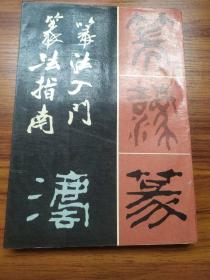 篆法入门
篆法指南
篆
篆
灋